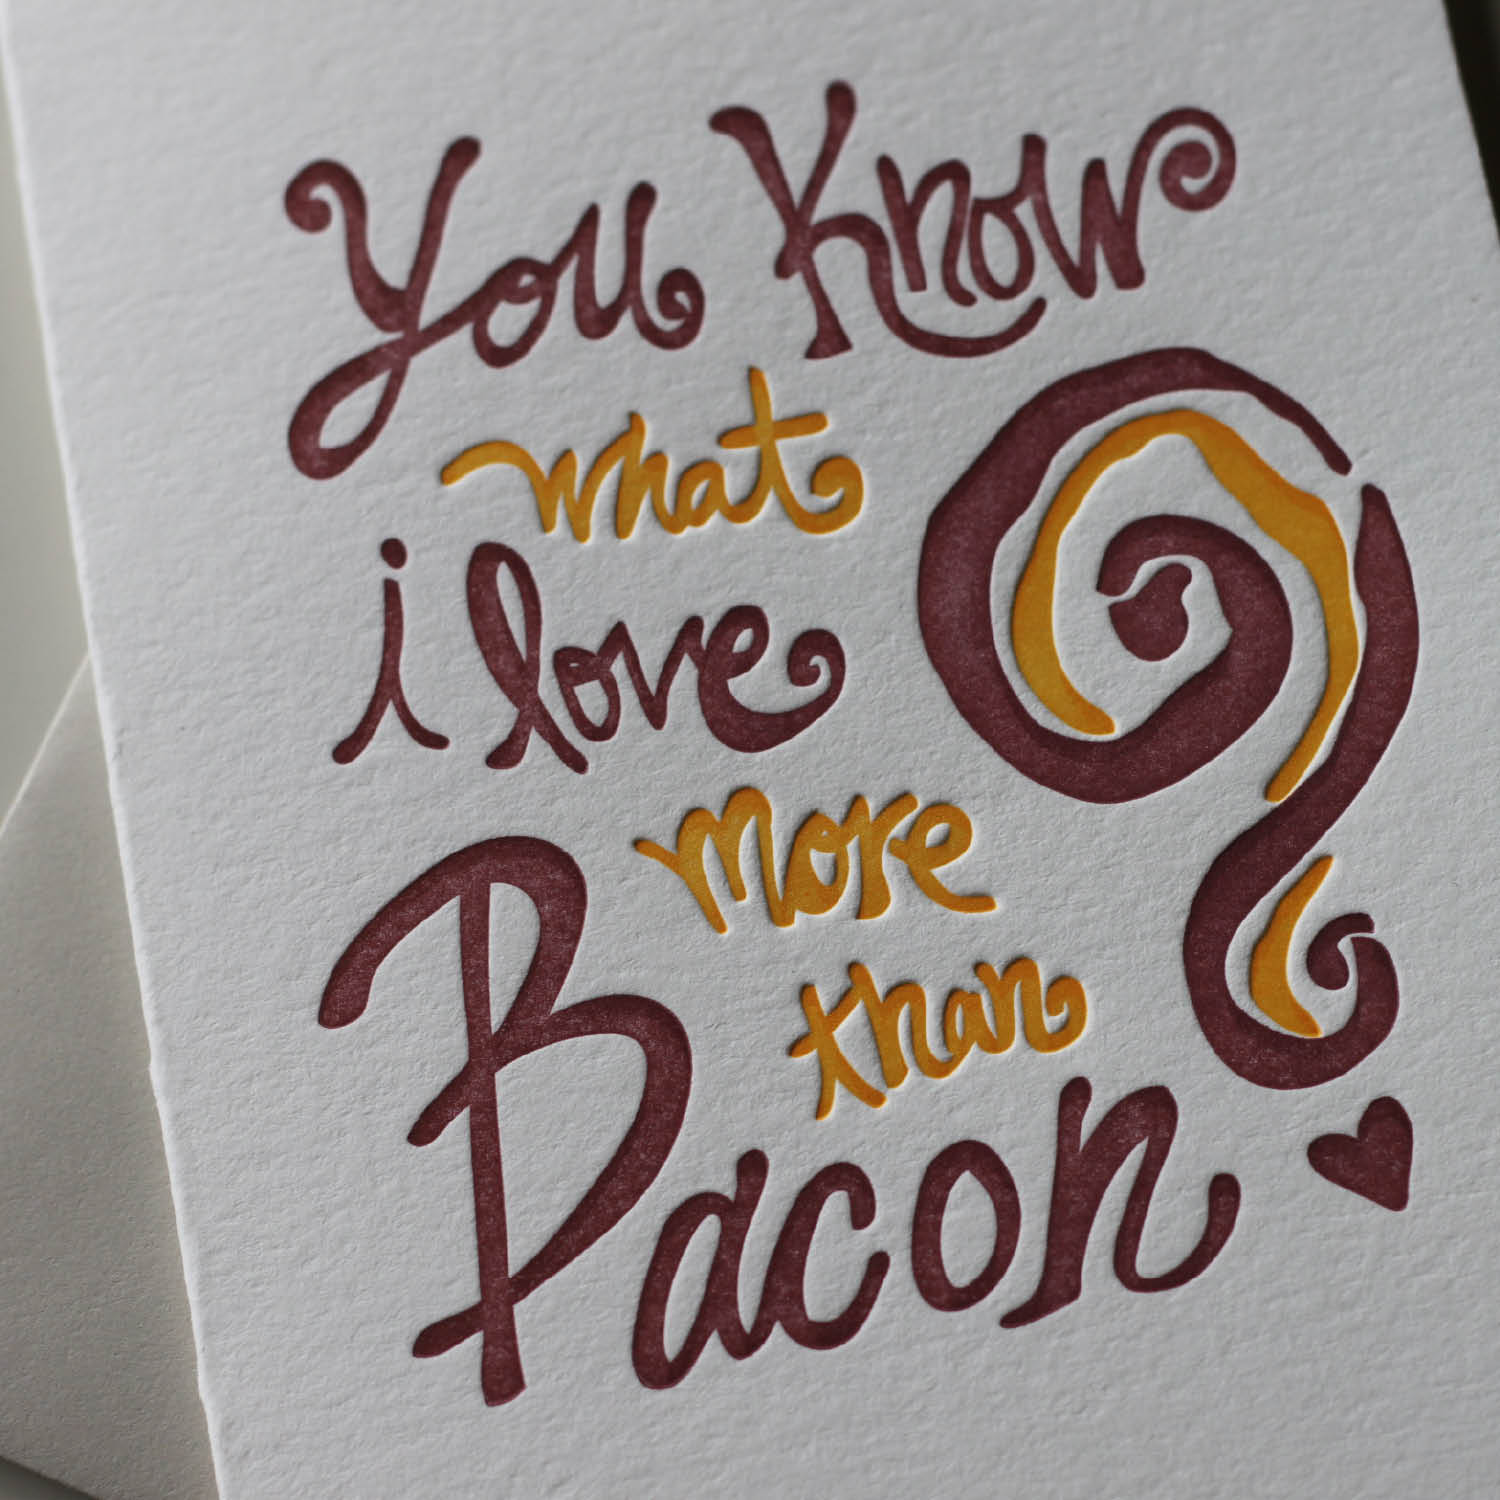 You Know
what
i love
more
than
Bacon